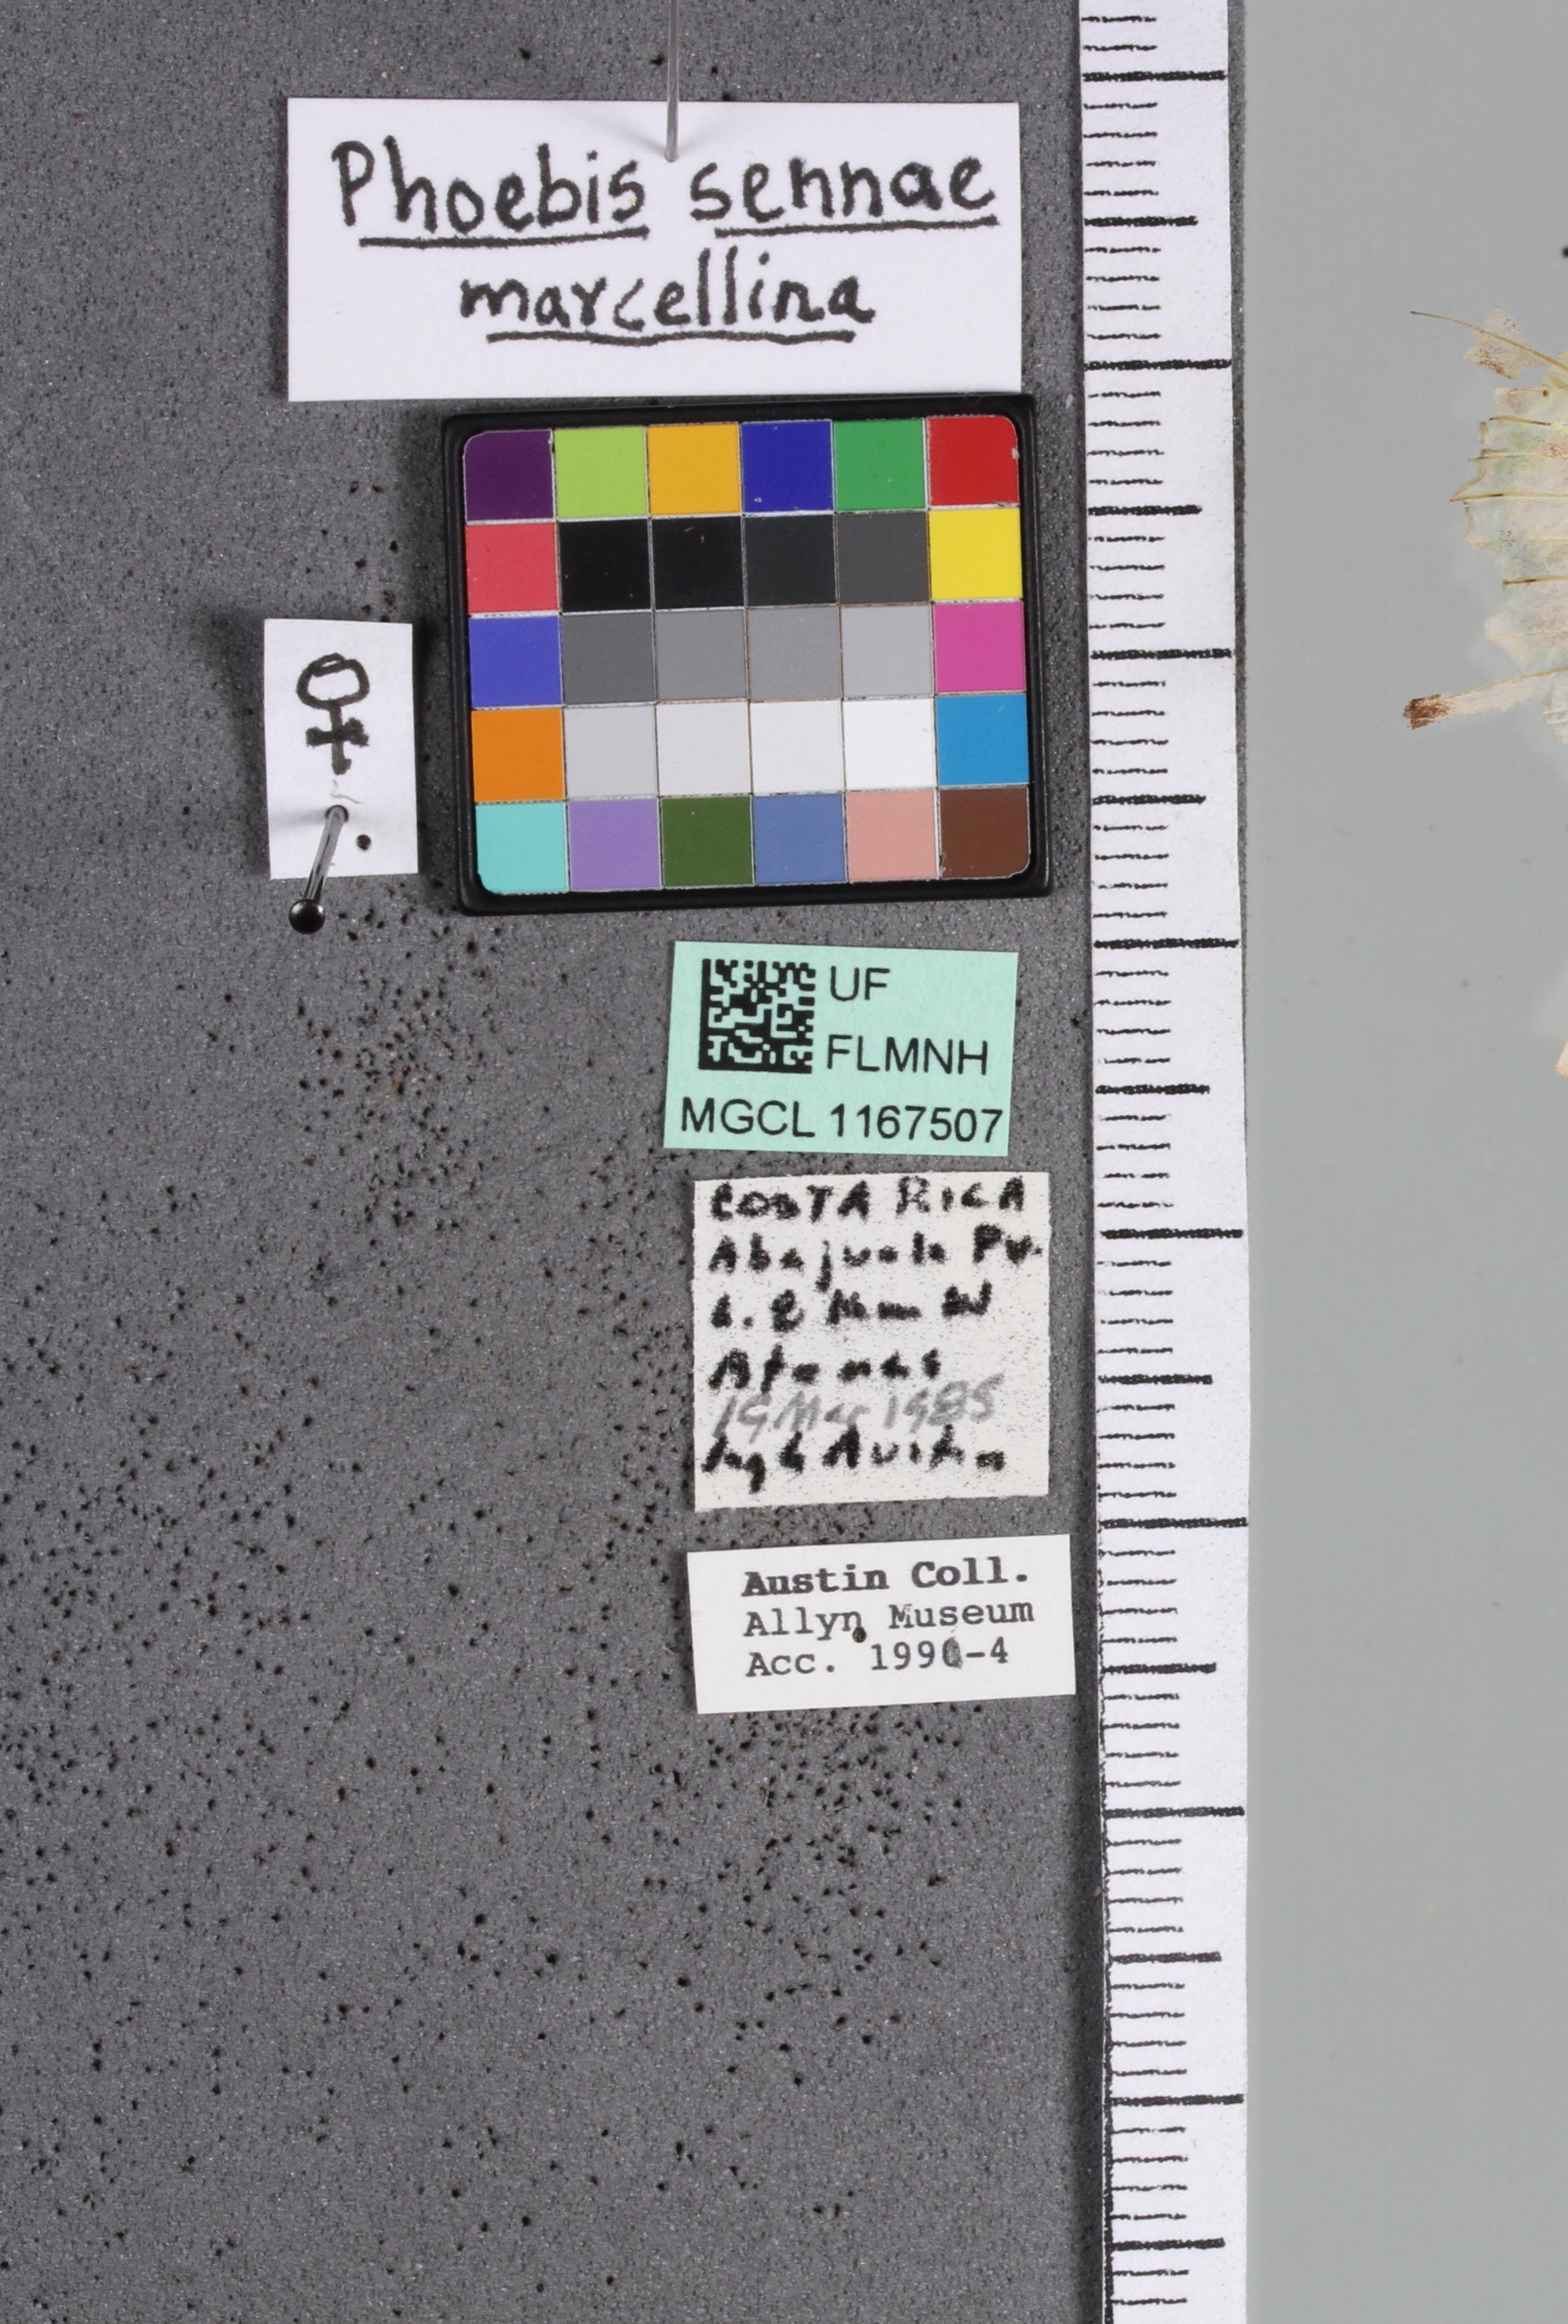 Phoebis sennae
marcellina
♀
UF
FLMNH
MGCL 1167507
COSTA RICA
Pv.
W
Atenas
19 Mar 1985
Austin
Austin Coll.
Allyn Museum
Acc. 1990-4